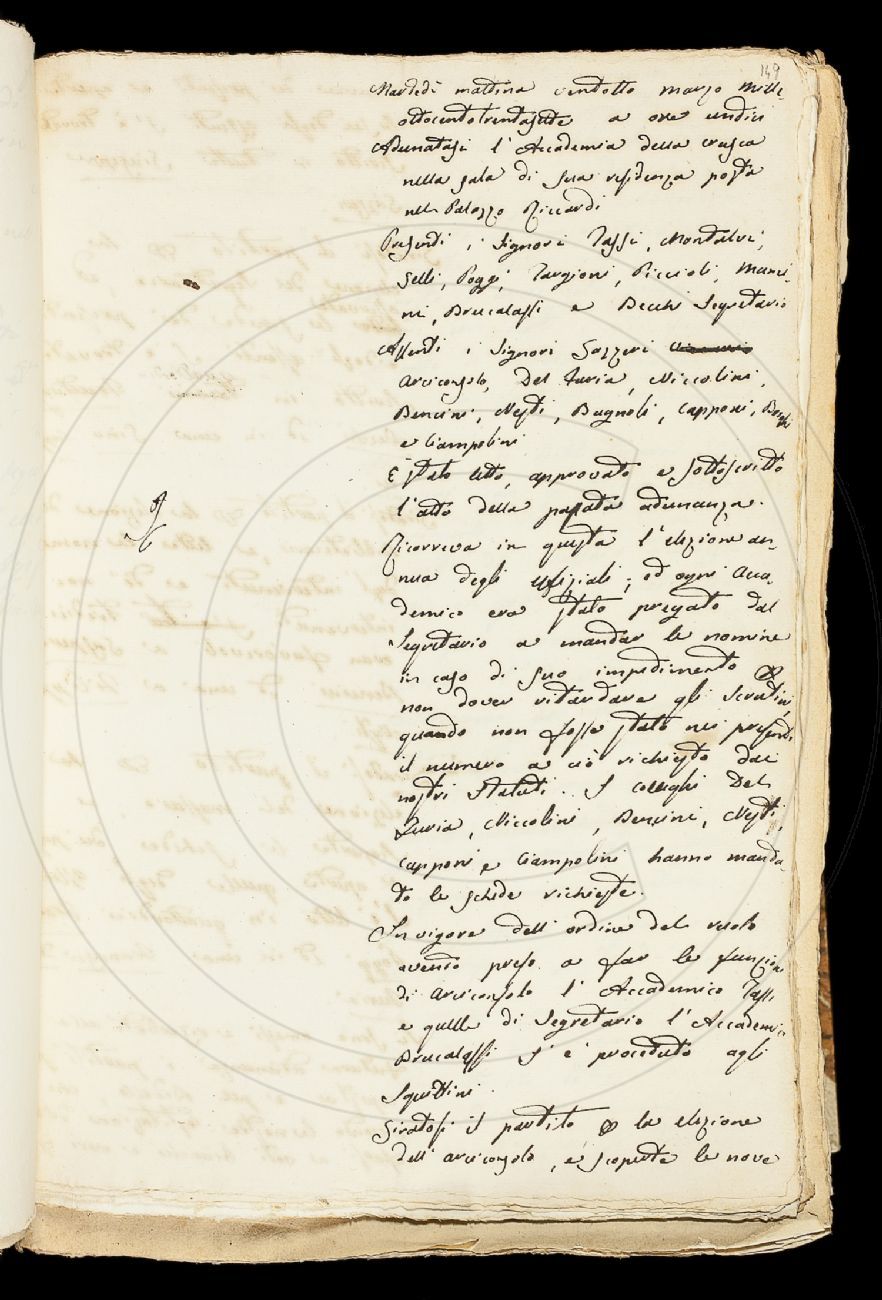 149
Martedì mattina ventotto marzo mille
ottocentotrentasette a ore undici
Adunatasi l'Accademia della crusca
nella sala di sua residenza posta
nel Palazzo Riccardi
Presenti i Signori Tassi, Montalvi,
Selli, Poggi, Targioni, Piccioli, Manci-
ni, Brucalassi e Becchi Segretario
Assenti i Signori Gazzeri
arciconsolo, Del Furia, Niccolini,
Bencini, Nesti, Bagnoli, Capponi,
e Ciampolini
È stato letto, approvato e sottoscritto
l'atto della passata adunanza.
Ricorreva in questa l'elezione an-
nua degli Ufiziali; ed ogni Acca-
demico era stato pregato dal
Segretario a mandar le nomine
in caso di suo impedimento p
non dover ritardare gli Scrutini,
quando non fosse stato nei presenti
il numero a ciò richiesto dai
nostri Statuti. I colleghi Del
Furia, Niccolini, Bencini, Nesti,
Capponi e Ciampolini hanno manda-
to le schede richieste.
In vigore dell'ordine del ruolo
avendo preso a far le funzioni
di arciconsolo l'Accademico Tassi
e quelle di Segretario l'Accademico
Brucalassi s'è proceduto agli
Squittini.
Giratosi il partito p la elezione
dell'arciconsolo, e scoperte le nove